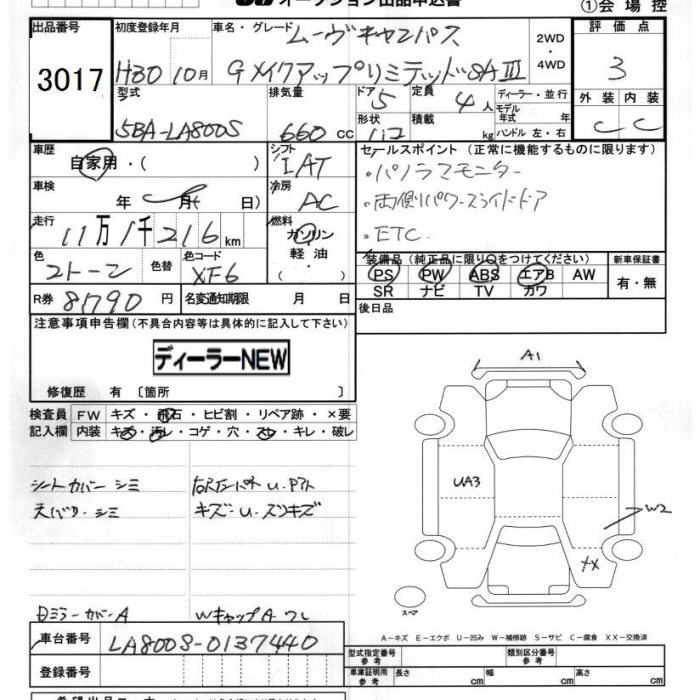 オークション出品申込書
①会場控
出品番号 初度登録年月 車名・グレード 評価点
3017
ムーヴキャンバス
H30 10月 Gメイクアップリミテッド SAⅢ
2WD
4WD
3
型式 排気量 ドア 定員 ディーラー・並行 外装 内装
5 4人 モデル年式 年
5BA-LA800S 660cc 形状 積載 kg ハンドル 左・右 C C
車歴 シフト セールスポイント (正常に機能するものに限ります)
自家用・( ) IAT ・パノラマモニター
車検 冷房
年 月( 日) AC ・両側パワースライドドア
走行 燃料
11万1千216km ガソリン ・ETC
軽油
・( )
色 色替 色コード 装備品 (純正品に限り○をつけてください) 新車保証書
2トーン XF6 PS PW ABS エアB AW 有・無
SR ナビ TV カワ
R券 8,790円 名変通知期限 月 日 後日品
注意事項申告欄(不具合内容等は具体的に記入して下さい)
ディーラーNEW
修復歴 有 〔箇所 〕
検査員 FW キズ・飛石・ヒビ割・リペア跡・×要
記入欄 内装 キズ・汚れ・コゲ・穴・スレ・キレ・破レ
A1
UA3
W2
XX
スペア
シートカバー シミ
天バリ・シミ キズ・U・スリキズ
ミラーカバーA WキャップA ワレ
A−キズ E−エクボ U−凹み W−補修跡 S−サビ C−腐食 XX−交換済
車台番号 LA800S-0137440
型式指定番号 参考 類別区分番号 参考
登録番号
車庫証明用 参考 長さ cm 幅 cm 高さ cm